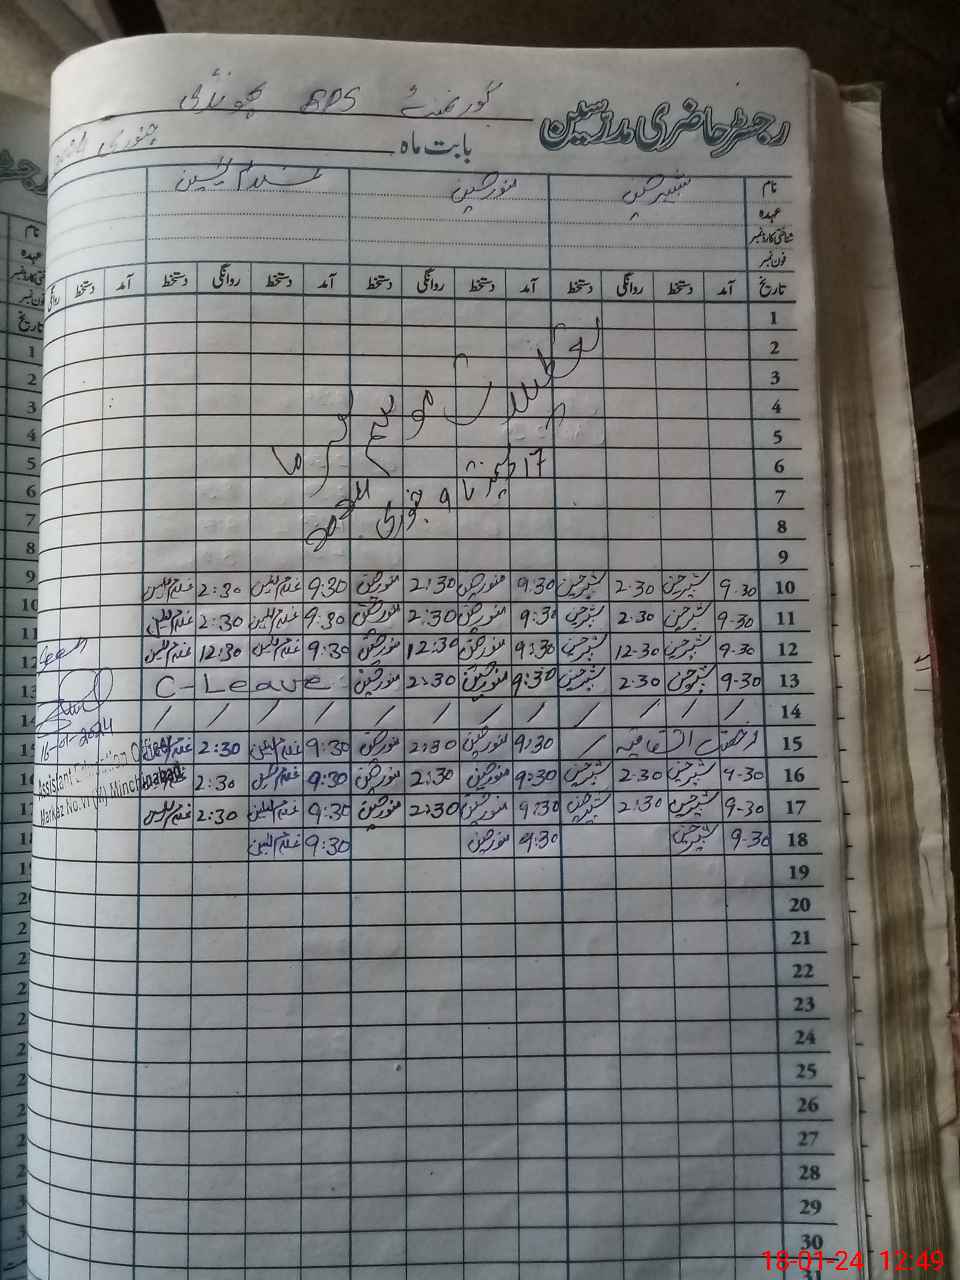 گورنمنٹ BPS
رجسٹر حاضری مدرسین
بابت ماہ جنوری
نام شبیر حسین منور حسین غلام یٰسین
عہدہ
شناختی کارڈ نمبر
فون نمبر
تاریخ آمد دستخط روانگی دستخط آمد دستخط روانگی دستخط آمد دستخط روانگی دستخط آمد دستخط روانگی
1
2
3
4
5
6
7
8
9
تعطیلات موسم سرما
17 دسمبر تا 9 جنوری
10 9.30 شبیر حسین 2.30 شبیر حسین 9.30 منور حسین 2:30 منور حسین 9:30 غلام یٰسین 2:30 غلام یٰسین
11 9.30 شبیر حسین 2.30 شبیر حسین 9:30 منور حسین 2:30 منور حسین 9:30 غلام یٰسین 2:30 غلام یٰسین
12 9.30 شبیر حسین 12.30 شبیر حسین 9:30 منور حسین 12:30 منور حسین 9:30 غلام یٰسین 12:30 غلام یٰسین
13 9.30 شبیر حسین 2.30 شبیر حسین 9:30 منور حسین 2:30 منور حسین C-Leave
14 / / / / / / / / / / /
15 رخصت اتفاقیہ / 9:30 منور حسین 2:30 منور حسین 9:30 غلام یٰسین 2:30 غلام یٰسین
16 9.30 شبیر حسین 2.30 شبیر حسین 9:30 منور حسین 2:30 منور حسین 9:30 غلام یٰسین 2:30 غلام یٰسین
17 9.30 شبیر حسین 2:30 شبیر حسین 9:30 منور حسین 2:30 منور حسین 9:30 غلام یٰسین 2:30 غلام یٰسین
18 9.30 شبیر حسین 9:30 منور حسین 9:30 غلام یٰسین
16-01-2024
Assistant Education Officer
Markaz No.VI (M) Minchinabad
19
20
21
22
23
24
25
26
27
28
29
30
31
18-01-24 12:49